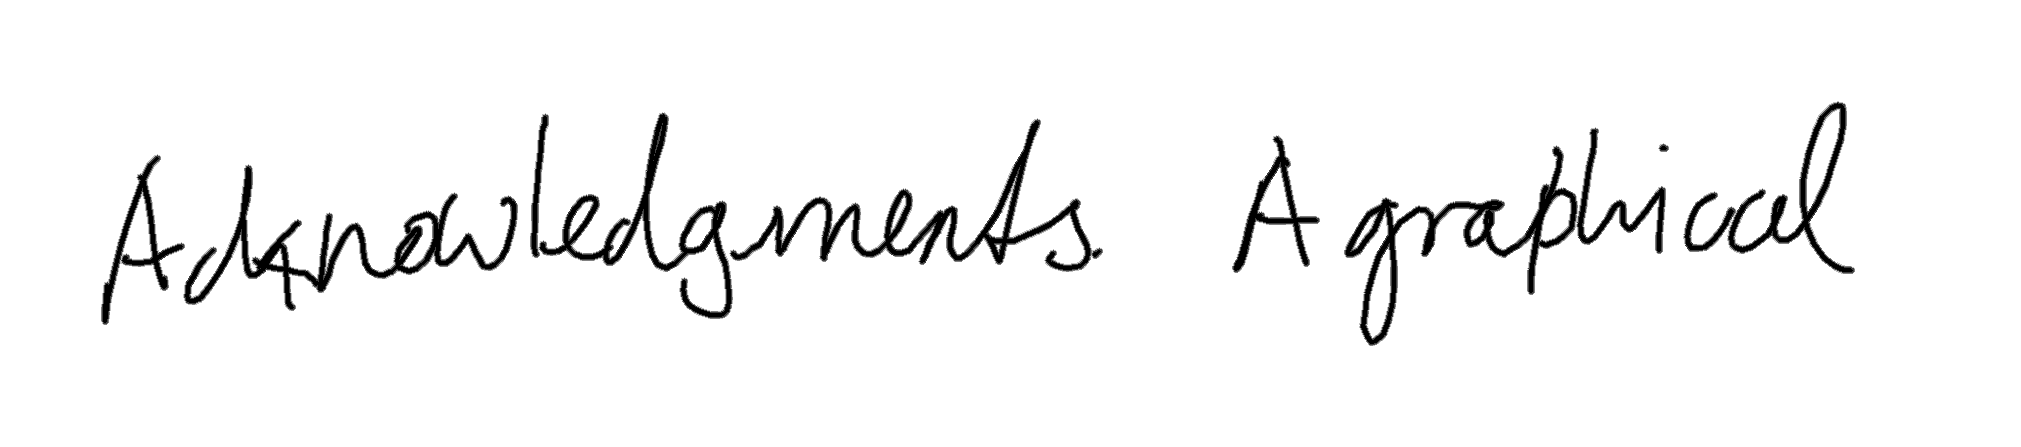 Acknowledgments. A graphical